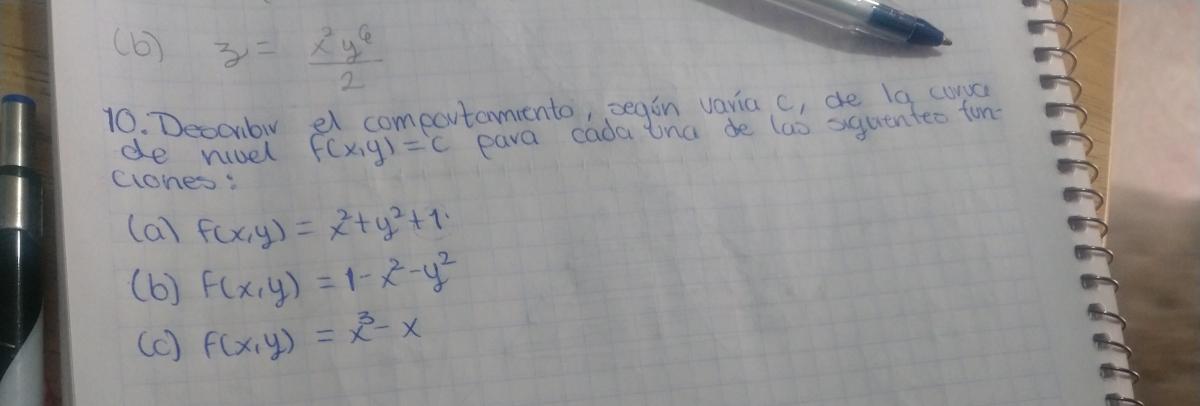 (b) z = x²y⁶/2
10. Describir el comportamiento, según varía c, de la curva
de nivel f(x,y)=c para cada una de las siguientes fun-
ciones:
(a) f(x,y) = x²+y²+1.
(b) f(x,y) = 1-x²-y²
(c) f(x,y) = x³-x